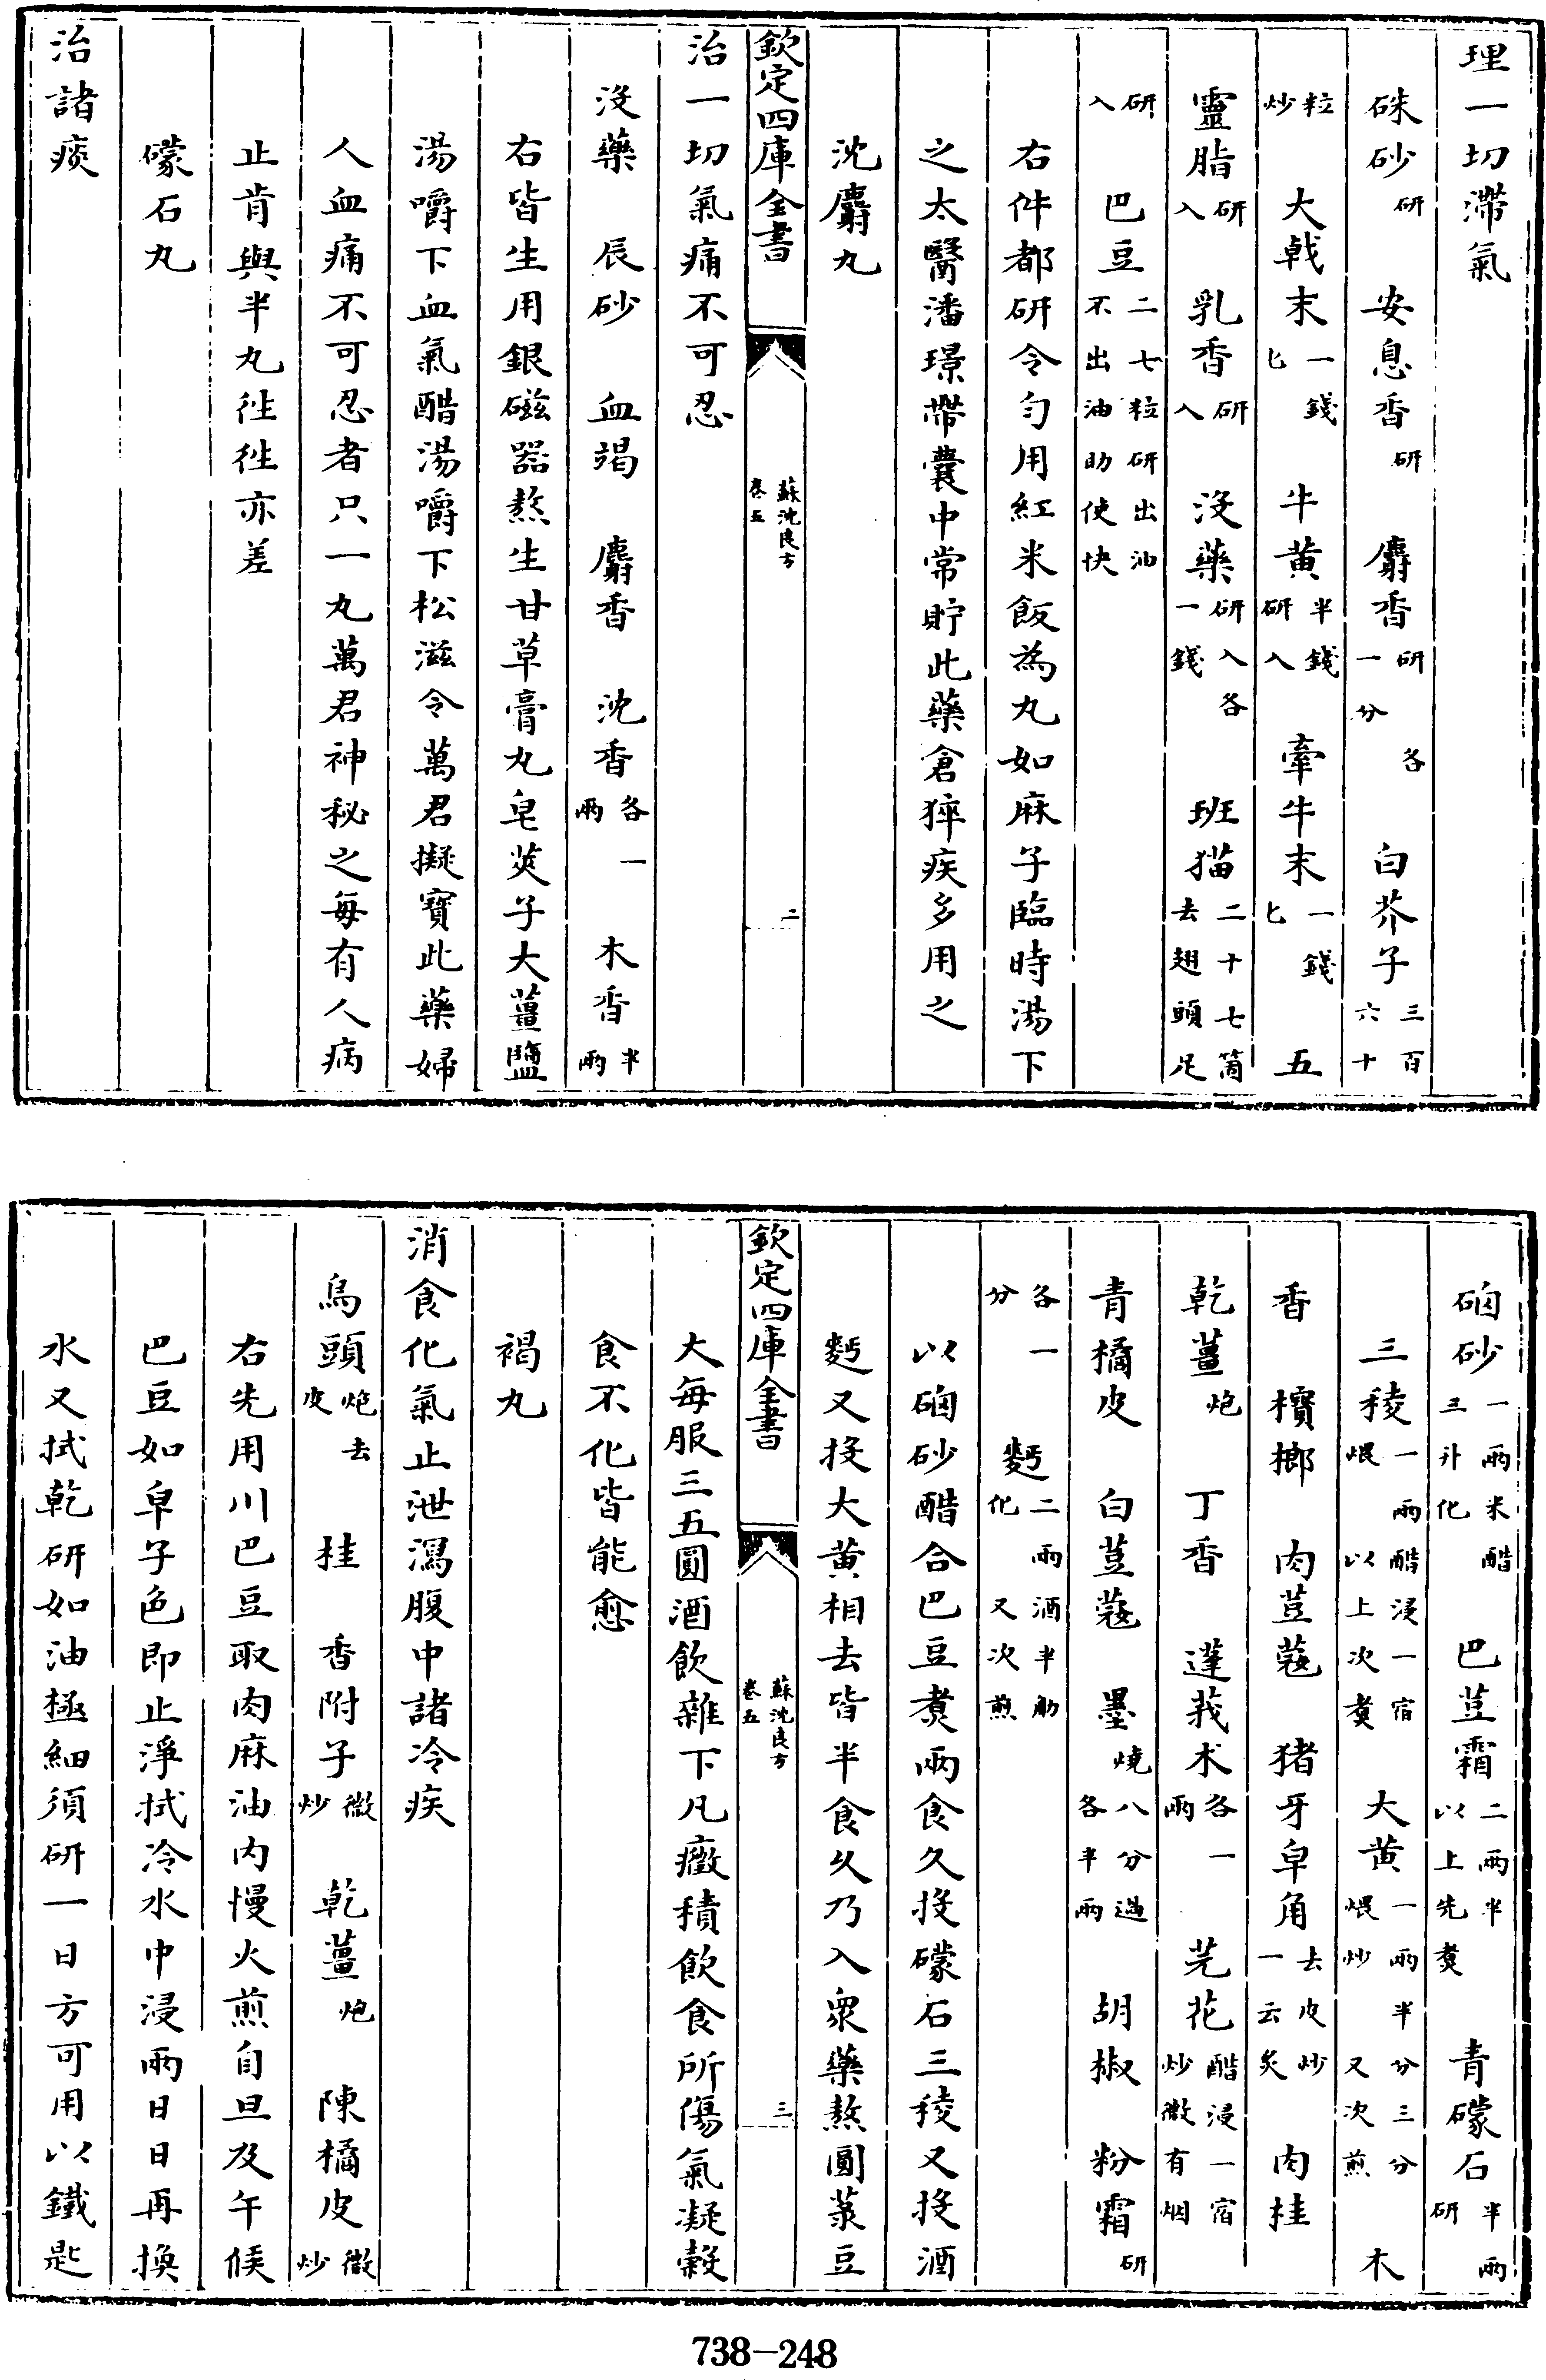 理一切滯氣
硃砂研　安息香研　麝香研各一分　白芥子三百六十
粒炒　大戟末一錢匕　牛黄半錢研入　牽牛末一錢匕　五
靈脂研入　乳香研入　沒藥研入各一錢　班猫二十七箇去翅頭足
研入　巴豆二七粒研出油不出油助使快
右件都研令勻用紅米飯為丸如麻子臨時湯下
之太醫潘璟帶囊中常貯此藥倉猝疾多用之
沈麝丸
欽定四庫全書　蘇沈良方卷五　二
治一切氣痛不可忍
沒藥　辰砂　血竭　麝香　沈香各一兩　木香半兩
右皆生用銀磁器熬生甘草膏丸皂莢子大薑鹽
湯嚼下血氣酷湯嚼下松滋令萬君擬寳此藥婦
人血痛不可忍者只一丸萬君神秘之每有人病
止肯與半丸徃徃亦差
礞石丸
治諸痰
硇砂一兩米醋三升化　巴荳霜二兩半以上先煑　青礞石半兩研
三稜一兩醋浸一宿煨以上次煑　大黄一兩半分三分煨炒又次煎　木
香　檳榔　肉荳蔻　猪牙皁角去皮炒一云炙　肉桂
乾薑炮　丁香　蓬莪术各一兩　芫花醋浸一宿炒微有烟
青橘皮　白荳蔻　墨燒八分過各半兩　胡椒　粉霜研
各一分　麫二兩酒半觔化又次煎
以硇砂醋合巴豆煑兩食久投礞石三稜又投酒
麫又投大黄相去皆半食乆乃入衆藥熬圓菉豆
欽定四庫全書　蘇沈良方卷五　三
大每服三五圓酒飲雜下凡癥積飲食所傷氣凝穀
食不化皆能愈
褐丸
消食化氣止泄瀉腹中諸冷疾
烏頭炮去皮　桂　香附子微炒　乾薑炮　陳橘皮微炒
右先用川巴豆取肉麻油内慢火煎自旦及午候
巴豆如皁子色即止淨拭冷水中浸兩日日再換
水又拭乾研如油極細須研一日方可用以鐵匙
738-248